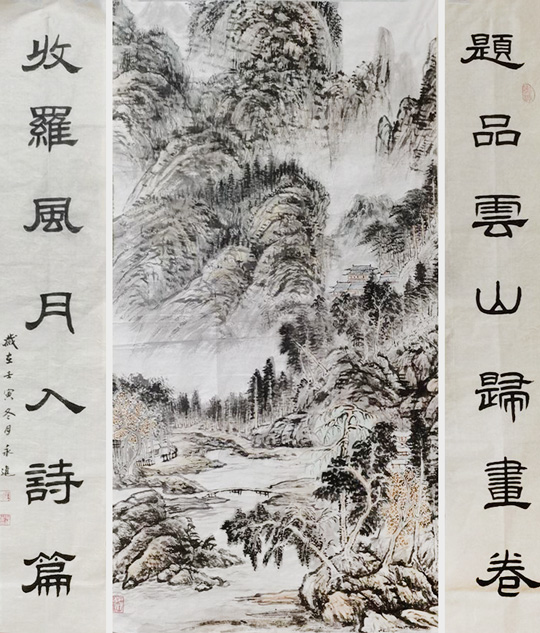 題品雲山歸畫卷
收羅風月入詩篇
歲在壬寅冬月